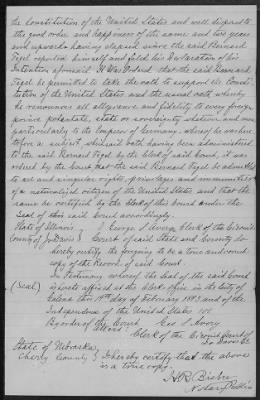 the Constitution of the United States and well disposed to
the good order and happiness of the same and two years
and upwards having elapsed since the said Bernard
Tegel reported himself and filed his Declaration of his
Intention aforesaid It Was Ordered that the said Bernard
Tegel be permitted to take the oath to support the Consti-
tution of the United States and the usual oath whereby
he renounces all allegiance and fidelity to every foreign
prince potentate, state or sovereignty whatever and more
particularly to the Emperor of Germany whereof he was here-
tofore a subject, which said oath having been administered
to the said Bernard Tegel by the Clerk of said Court, it was
ordered by the Court that the said Bernard Tegel be admitted
to all and singular rights, privileges and immunities
of a naturalized citizen of the United States and that the
same be certified by the Clerk of this Court under the
Seal of this said Court accordingly.
State of Illinois } I George S Avery Clerk of the Circuit
County of Jo Daviess } Court of said State and County do
hereby certify the foregoing to be a true and correct
copy of the Record of said Court.
In testimony whereof the Seal of the said Court
(Seal) is hereto affixed at the Clerks office in the City of
Galena this 19th day of February 1883 and of the
Independence of the United States 107
By order of the Court Geo S Avery
Attest Clerk of the Circuit Court of
Jo Daviess Co
State of Nebraska,
County } I hereby certify that the above
is a true copy.
H.R.
Notary Public